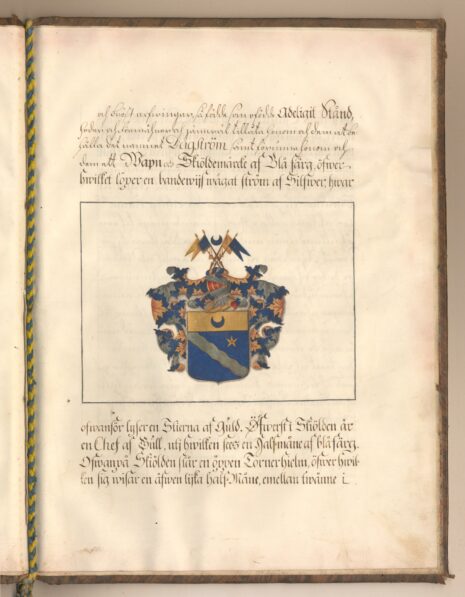 och bröst arfwingar så födde som ofödde Adeligit Stånd,
heder och förmåhner och jämwäl tillåta honom och dem at be
hålla det namnet Engström samt förunna honom och
dem ett Wapn och Sköldemärcke af Blå färg, öfwer-
hwilket löper en bandewijs wågat ström af Silfwer, hwar
ofwanför lyser en Stierna af Guld. Öfwerst i Skölden är
en Chef af Gull, uti hwilken sees en Half måne af blå färg.
Ofwanpå Skölden står en öppen Tornerhielm, öfwer hwil-
ken sig wisar en äfwen lijka half Måne, emellan twänne i